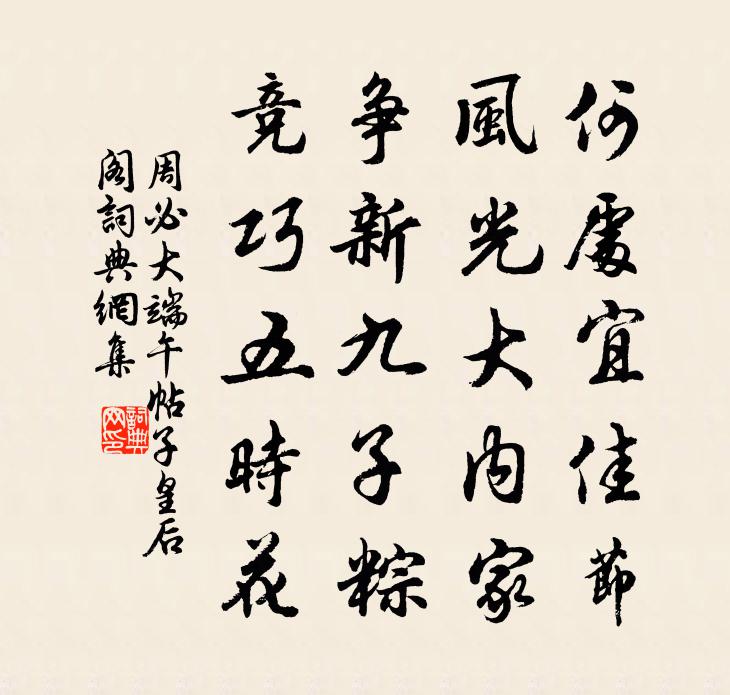 何處宜佳節
風光大內家
爭新九子粽
競巧五時花
周必大端午帖子皇后
閣詞典網集
詞典网印